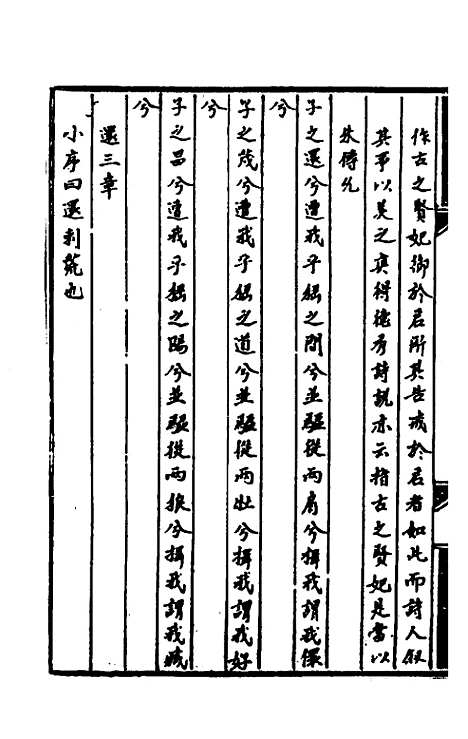 作古之賢妃御於君所其告戒於君者如此而詩人叙
其事以美之真得德秀詩説亦云指古之賢妃是當以
朱傳允
子之還兮遭我乎峱之間兮並驅從兩肩兮揖我謂我儇
兮
子之茂兮遭我乎峱之道兮並驅從兩牡兮揖我謂我好
兮
子之昌兮遭我乎峱之陽兮並驅從兩狼兮揖我謂我臧
兮
還三章
小序曰還刺荒也